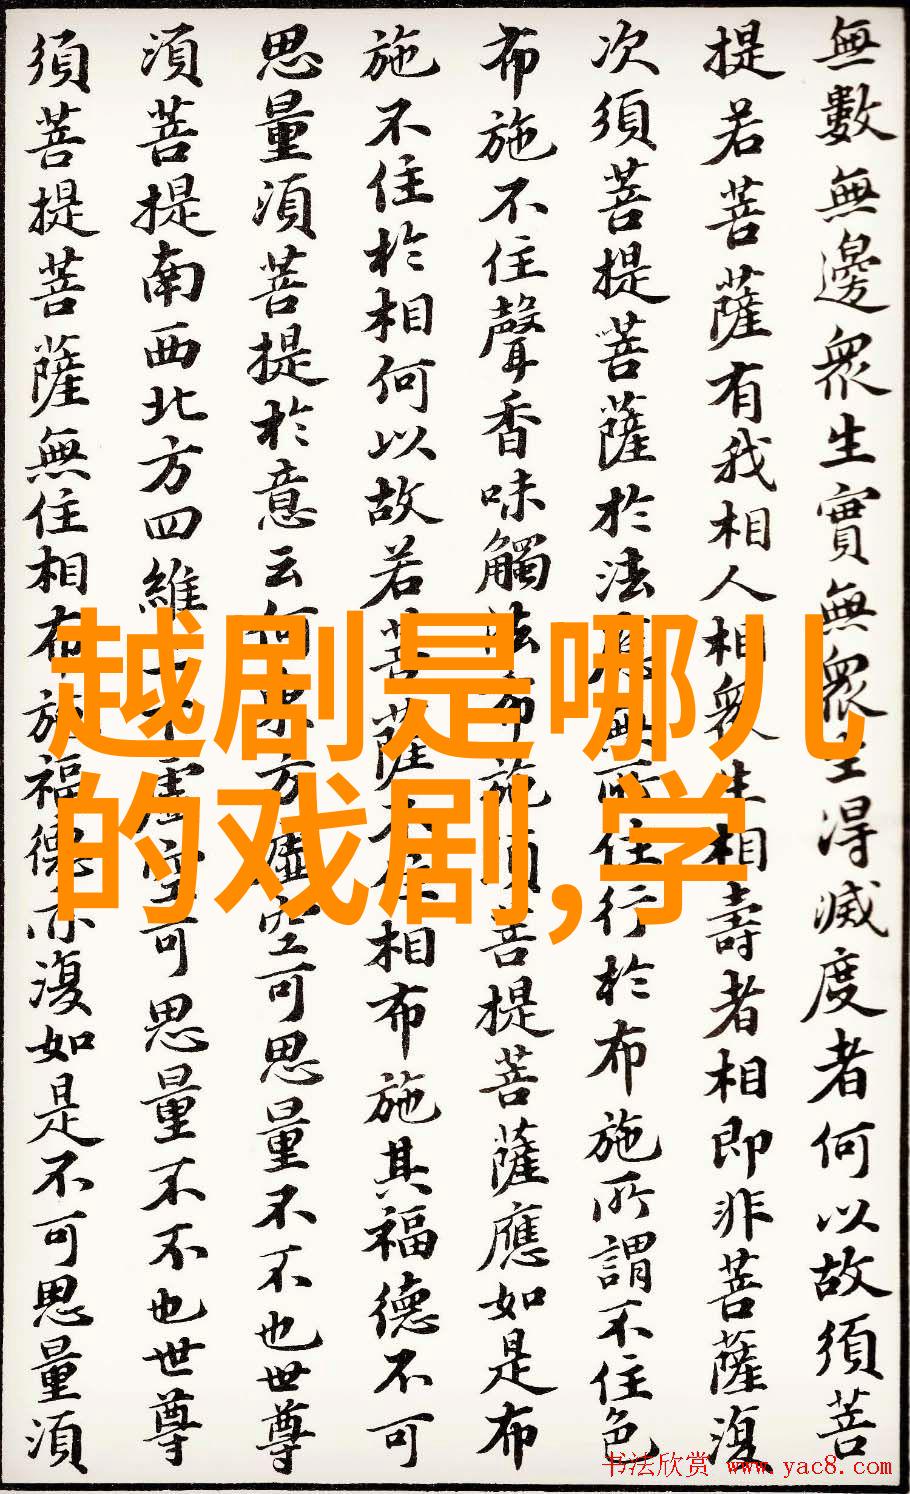 無數無邊衆生實無衆生得滅度者何以故須菩
提若菩薩有我相人相衆生相壽者相即非菩薩復
次須菩提菩薩於法應無所住行於布施所謂不住色
布施不住聲香味觸法布施須菩提菩薩應如是布
施不住於相何以故若菩薩不住相布施其福德不可
思量須菩提於意云何東方虛空可思量不不也世尊
須菩提南西北方四維上下虛空可思量不不也世尊
須菩提菩薩無住相布施福德亦復如是不可思量須
越剧是哪儿
的戏剧,学
书法欣赏 www.yac8.com